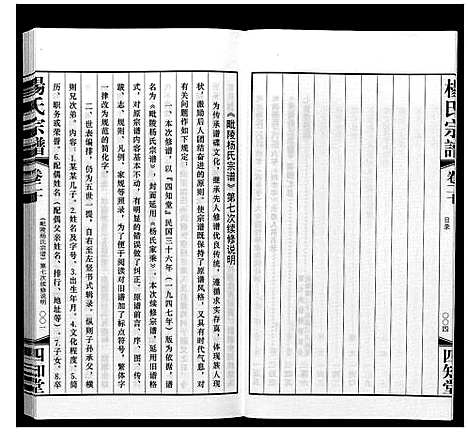 楊氏宗譜
卷二十
目录
〇〇四
四知堂
《毗陵杨氏宗谱》第七次续修说明
为传承谱碟文化，继承先人修谱优良传统，遵循求实存真，体现族人现
状，激励后人团结奋进的原则，使宗谱既保持了原谱风格，又具有时代气息，对
有关问题作如下规定：
一、本次修谱，以『四知堂』民国三十六年（一九四七年）版《毗陵杨氏宗谱》
名为《毗陵杨氏宗谱》，封面延用《杨氏家乘》，本次续修宗谱，延用旧谱格
式，对原宗谱内容基本不动，有明显的错误做了纠正。原谱前言、序、图、传、
跋、志、规则、凡例、家规等照录，为了便于阅读对旧谱加了标点符号，繁体字
一律改为规范的简化字。
二、世表编排，仍为五世一提，自右至左竖书式辑录，纵则子孙承父，横
则兄次弟。内容：1.某某几子。2.姓名及字号。3.出生年月。4.文化程度。5.简
历、职务或荣誉。6.配偶姓名（配偶父亲姓名、排行、地址等）。7.子女。8.卒
楊氏宗譜
卷二十
《毗陵杨氏宗谱》第七次续修说明
〇〇一
四知堂